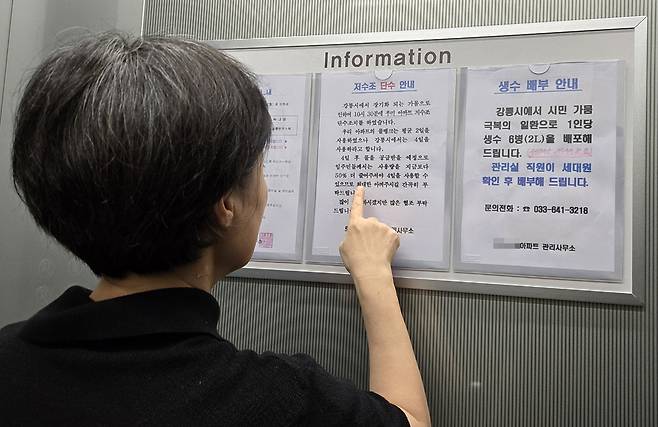 Information
안내
저수조 단수 안내
강릉시에서 장기화 되는 가뭄으로
인하여 10시 30분에 우리 아파트 저수조
단수조치를 하였습니다.
우리 아파트의 물탱크는 평균 2일을
사용하였으나 강릉시에서는 4일을
사용하라고 합니다.
4일 후 물을 공급받을 예정으로
입주민들께서는 사용량을 지금보다
50% 더 줄여주셔야 4일을 사용할 수
있으므로 최대한 아껴주시길 간곡히 부
탁드립니다.
많이 하시겠지만 많은 협조 부탁
드립니다.
관리사무소
생수 배부 안내
강릉시에서 시민 가뭄
극복의 일환으로 1인당
생수 6병(2L)을 배포해
드립니다.
관리실 직원이 세대원
확인 후 배부해 드립니다.
문의전화 : ☎ 033-641-3218
아파트 관리사무소